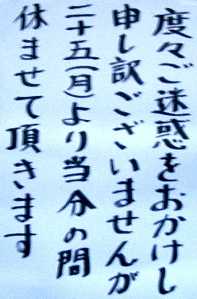 度々ご迷惑をおかけし
申し訳ございませんが
二十五(月)より当分の間
休ませて頂きます